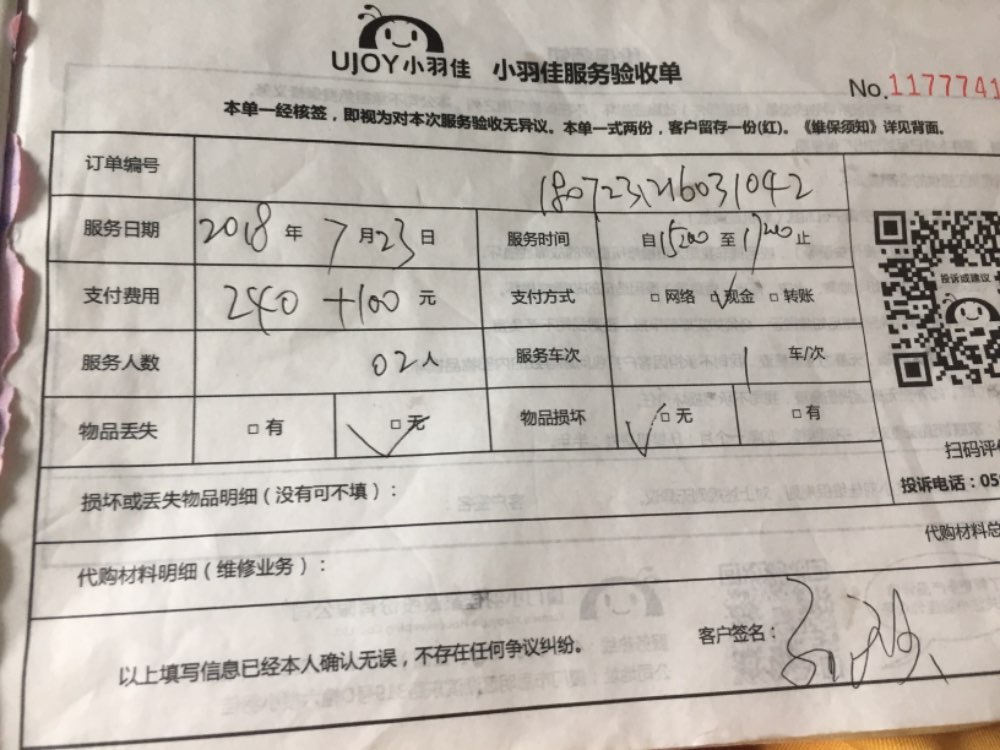 UJOY小羽佳 小羽佳服务验收单
No.1177741
本单一经核签，即视为对本次服务验收无异议。本单一式两份，客户留存一份(红)。《维保须知》详见背面。
订单编号 1807231216031042
服务日期 2018 年 7 月 23 日 服务时间 自 15:00 至 17:00 止
支付费用 240 +100 元 支付方式 □ 网络 ☑ 现金 □ 转账
投诉或建议
服务人数 02人 服务车次 1 车/次
物品丢失 □ 有 ☑ 无 物品损坏 ☑ 无 □ 有
扫码评
损坏或丢失物品明细（没有可不填）：
投诉电话：05
代购材料总
代购材料明细（维修业务）：
客户签名：
以上填写信息已经本人确认无误，不存在任何争议纠纷。